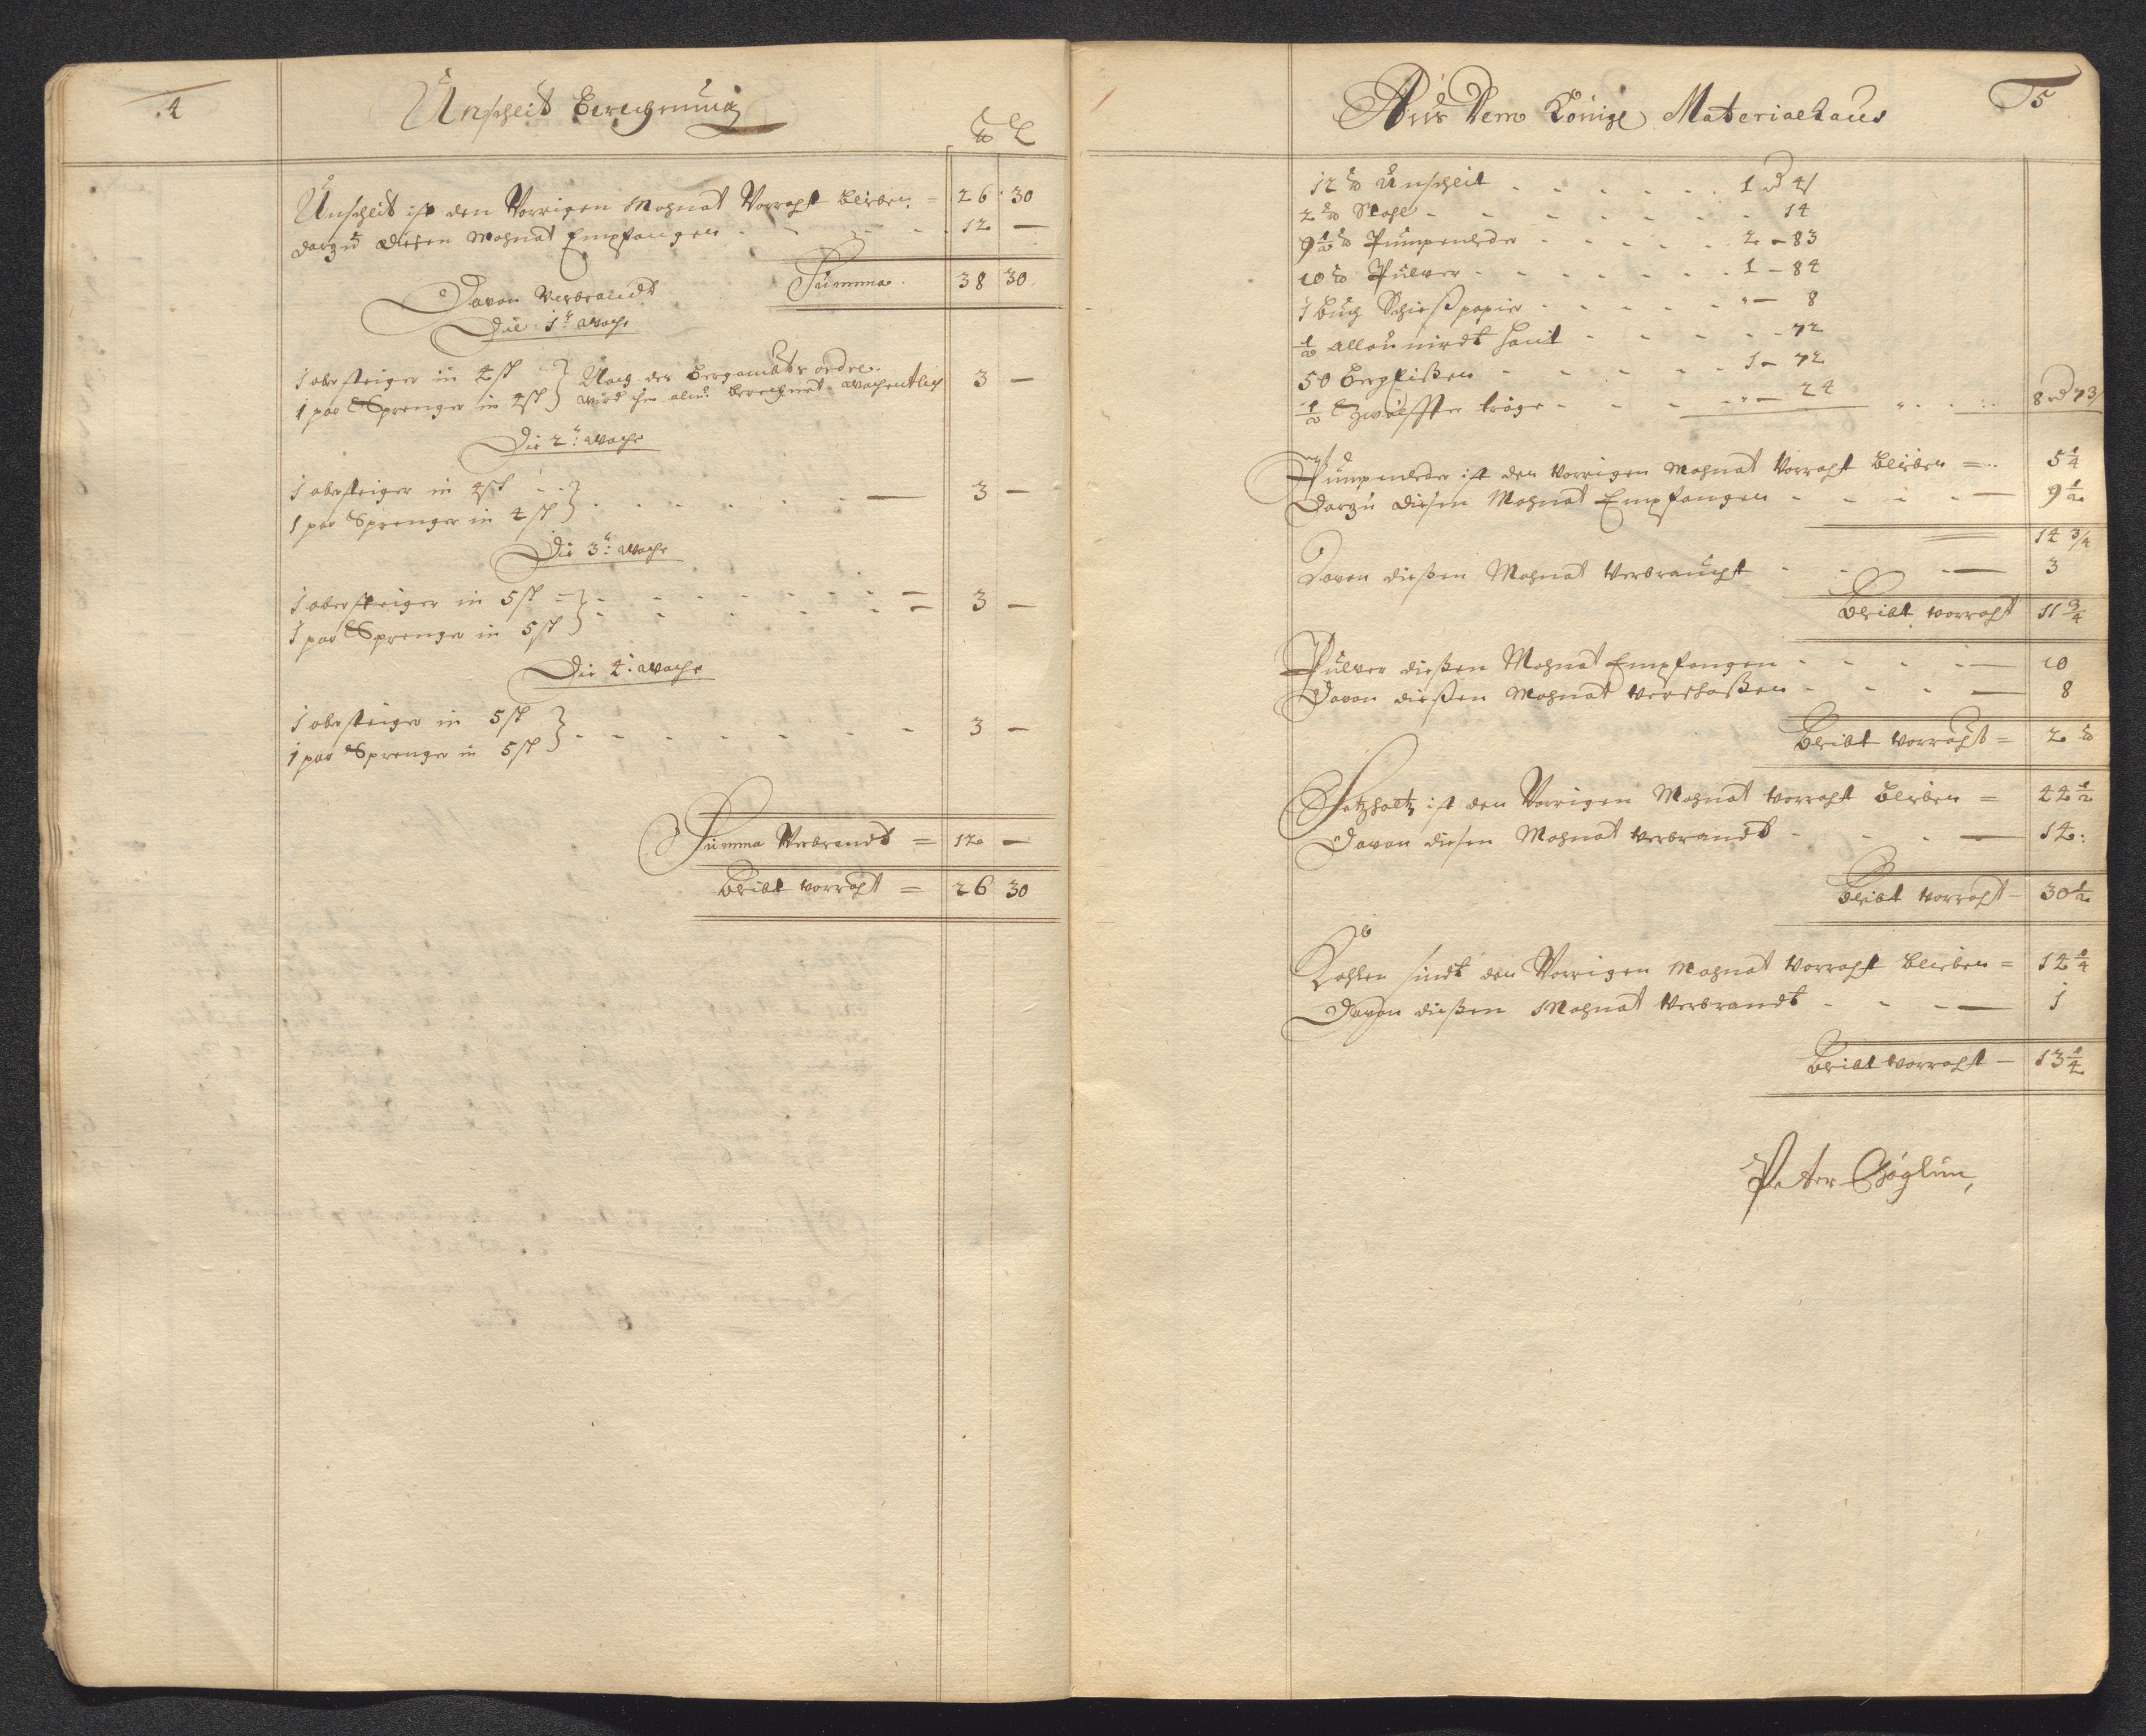 4
Unscheit Berechnung
℔ L
Unscheit ist den Vorrigen Mohnat Vorraht bleiben = 26 30
dargzu diesen Mohnat Empfangen - - - 12 —
Summa. 38 30
Davon Verbrandt
Die 1te Woche
1 obersteiger in 4 sch
1 par Sprenger in 4 sch } Nach des Bergambts ordre wird ihn berechnet wochentlich 3 —
Die 2te Woche
1 obersteiger in 4 sch
1 par Sprenger in 4 sch } - - - 3 —
Die 3te Woche
1 obersteiger in 5 sch = } - - - 3 —
1 par Sprenger in 5 sch
Die 4te Woche
1 obersteiger in 5 sch
1 par Sprenger in 5 sch } - - - 3 —
Summa Verbrandt = 12 —
bleibt vorraht = 26 30
5
Aus Dem Königl Materialhaus
12 ℔ Unscheit - - - 1 d 41
2 ℔ Stahl - - - 14
9½ ℔ Pumpenleder - - - 2 - 83
10 ℔ Pulver - - - 1 - 84
1 Buch Schießpapier - - - " - 8
½ allaunirdt haut - - - 72
50 Bergfißen - - - 1 - 72
½ Zwölffter tröge - - - " - 24 8 d 73
Pumpenleder ist den vorrigen Mohnat Vorraht bleiben = 5¼
dargzu diesen Mohnat Empfangen - - - 9½
14 3/4
Davon dießen Mohnat Verbraucht - - - 3
bleibt vorraht 11¾
Pulver dießen Mohnat Empfangen - - - 10
Davon dießen Mohnat verschoßen - - - 8
bleibt vorraht = 2 ℔
Setzholtz ist den Vorrigen Mohnat vorraht bleiben = 44½
Davon diesen Mohnat verbrandt - - - 14:
bleibt vorraht - 30½
Kohlen sindt den Vorrigen Mohnat vorraht bleiben = 14¼
Davon dießen Mohnat Verbrandt - - - 1
bleibt vorraht - 13¼
Peter